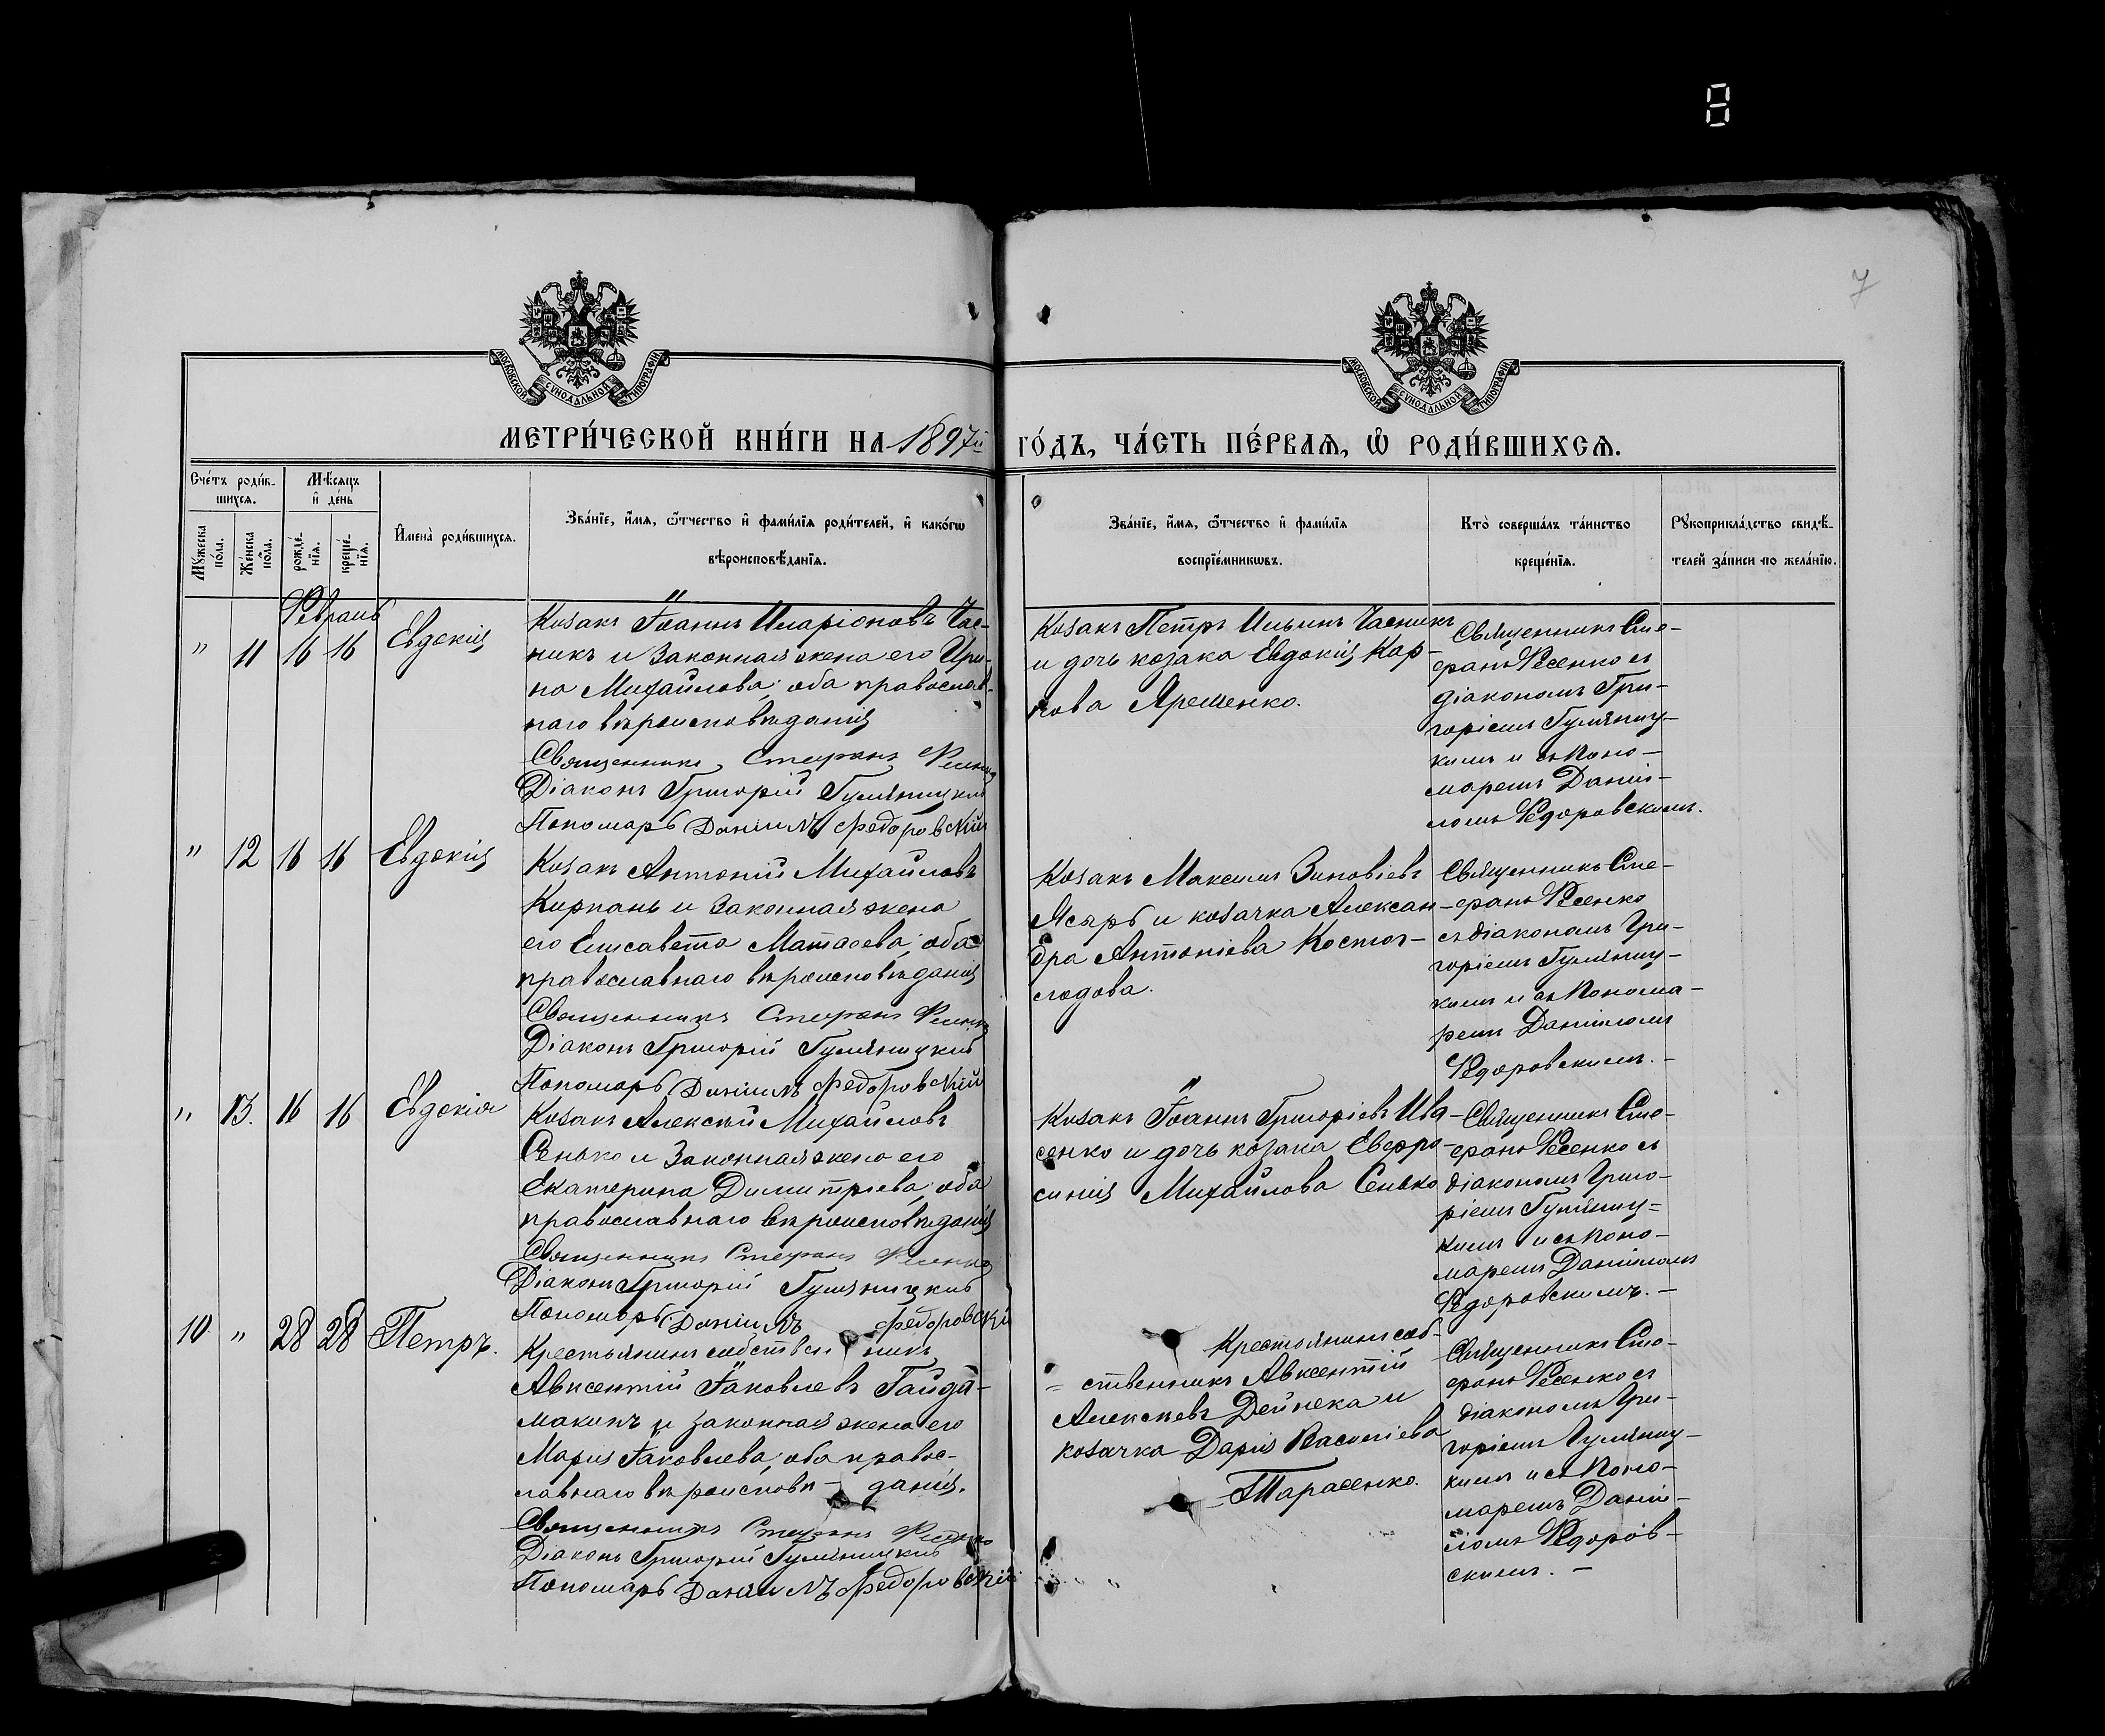 8
7
МОСКОВСКОЙ СѴНОДАЛЬНОЙ ТИПОГРАФІИ
МОСКОВСКОЙ СѴНОДАЛЬНОЙ ТИПОГРАФІИ
МЕТРИ́ЧЕСКОЙ КНИ́ГИ НА 1897й ГО́ДЪ, ЧА́СТЬ ПЕ́РВАѦ, Ѽ РОДИ́ВШИХСѦ.
Сче́тъ роди́в-
шихсѧ.
Мꙋ́жеска
по́ла.
Же́нска
по́ла.
Мѣ́сѧцъ
и҆ де́нь
рожде́-
нїѧ.
креще́-
нїѧ.
И҆мена̀ роди́вшихсѧ.
Зва́нїе, и҆́мѧ, ѻ҆́тчество и҆ фами́лїѧ роди́телей, и҆ како́гѡ
вѣроисповѣ́данїѧ.
Зва́нїе, и҆́мѧ, ѻ҆́тчество и҆ фами́лїѧ
воспрїе́мникѡвъ.
Кто̀ соверша́лъ та́инство
креще́нїѧ.
Рꙋкоприкла́дство свидѣ́-
телей за́писи по жела́нїю.
Февраль
" 11 16 16 Евдокія
Козакъ Іоаннъ Иларіоновъ Час-
никъ и законная жена его Ири-
на Михайлова; оба православ-
наго вѣроисповѣданія
Священникъ Стефанъ Фесенко
Діаконъ Григорій Гумяницкій
Пономарь Даніилъ Федоровскій
Козакъ Петръ Ильинъ Часникъ
и дочь козака Евдокія Кар-
пова Ярешенко.
Священникъ Сте-
фанъ Фесенко съ
діакономъ Гри-
горіемъ Гумяниц-
кимъ и съ Поно-
маремъ Даніи-
ломъ Федоровскимъ.
" 12 16 16 Евдокія
Козакъ Антоній Михайловъ
Кирпань и законная жена
его Елисавета Матѳеева; оба
православнаго вѣроисповѣданія
Священникъ Стефанъ Фесенко
Діаконъ Григорій Гумяницкій
Пономарь Даніилъ Федоровскій
Козакъ Максимъ Зиновіевъ
и козачка Алексан-
дра Антоніева
Священникъ Сте-
фанъ Фесенко
съ діакономъ Гри-
горіемъ Гумяниц-
кимъ и съ Понома-
ремъ Даніиломъ
Федоровскимъ. -
" 13. 16 16 Евдокія
Козакъ Алексѣй Михайловъ
Сенько и законная жена его
Екатерина Димитріева; оба
православнаго вѣроисповѣданія
Священникъ Стефанъ Фесенко
Діаконъ Григорій Гумяницкій
Пономарь Даніилъ Федоровскій
Козакъ Іоаннъ Григоріевъ Ива-
сенко и дочь козака Евфро-
синія Михайлова Сенько
Священникъ Сте-
фанъ Фесенко съ
діакономъ Григо-
ріемъ Гумяниц=
кимъ и съ Поно-
маремъ Даніиломъ
Федоровскимъ. -
10 " 28 28 Петръ.
Крестьянинъ собственникъ
Авксентій Іаковлевъ Гайда-
макинъ и законная жена его
Марія Іаковлева; оба правос-
лавнаго вѣроисповѣ- данія.
Священникъ Стефанъ Фесенко
Діаконъ Григорій Гумяницкій
Пономарь Даніилъ Федоровскій
Крестьянинъ соб-
= ственникъ Авксентій
Алексѣевъ Дейнека и
козачка Дарія Василіева
- Тарасенко.
Священникъ Сте-
фанъ Фесенко съ
діакономъ Гри-
горіемъ Гумяниц-
кимъ и съ Поно-
маремъ Даніи-
ломъ Федоров-
скимъ. -